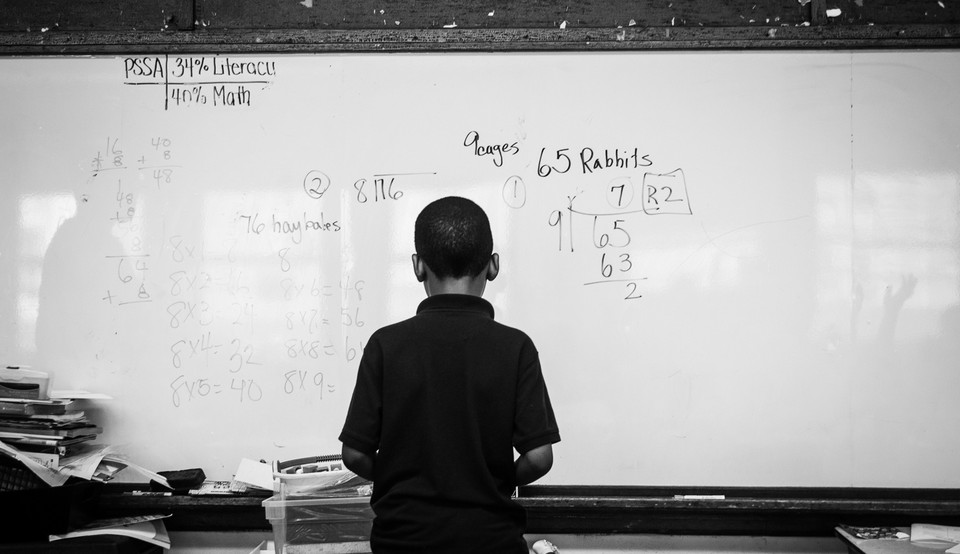 PSSA 34% Literacy
40% Math
16
* 8
40
+ 8
48
48
+ 8
64
+ 8
② 8 76
76 haybales
8x 8
8x2=16 8x6=48
8x3=24 8x7=56
8x4=32 8x8=6
8x5=40 8x9=
9 cages
① 65 Rabbits
7 R2
9 65
63
2